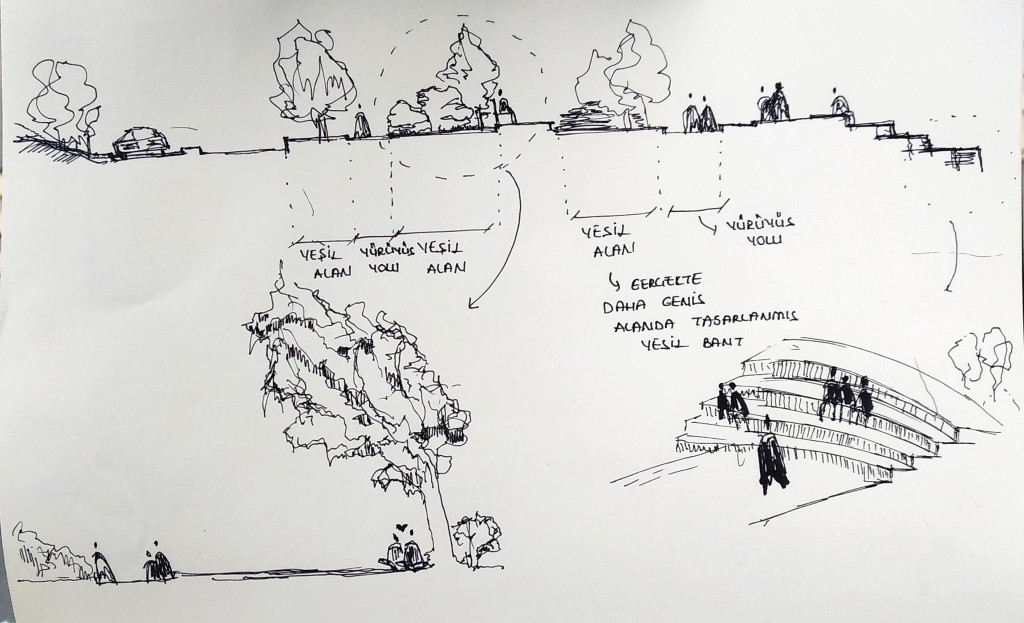 YEŞİL
ALAN
YÜRÜYÜŞ
YOLU
YEŞİL
ALAN
YEŞİL
ALAN
YÜRÜYÜŞ
YOLU
GERÇEKTE
DAHA GENİŞ
ALANDA TASARLANMIŞ
YEŞİL BANT